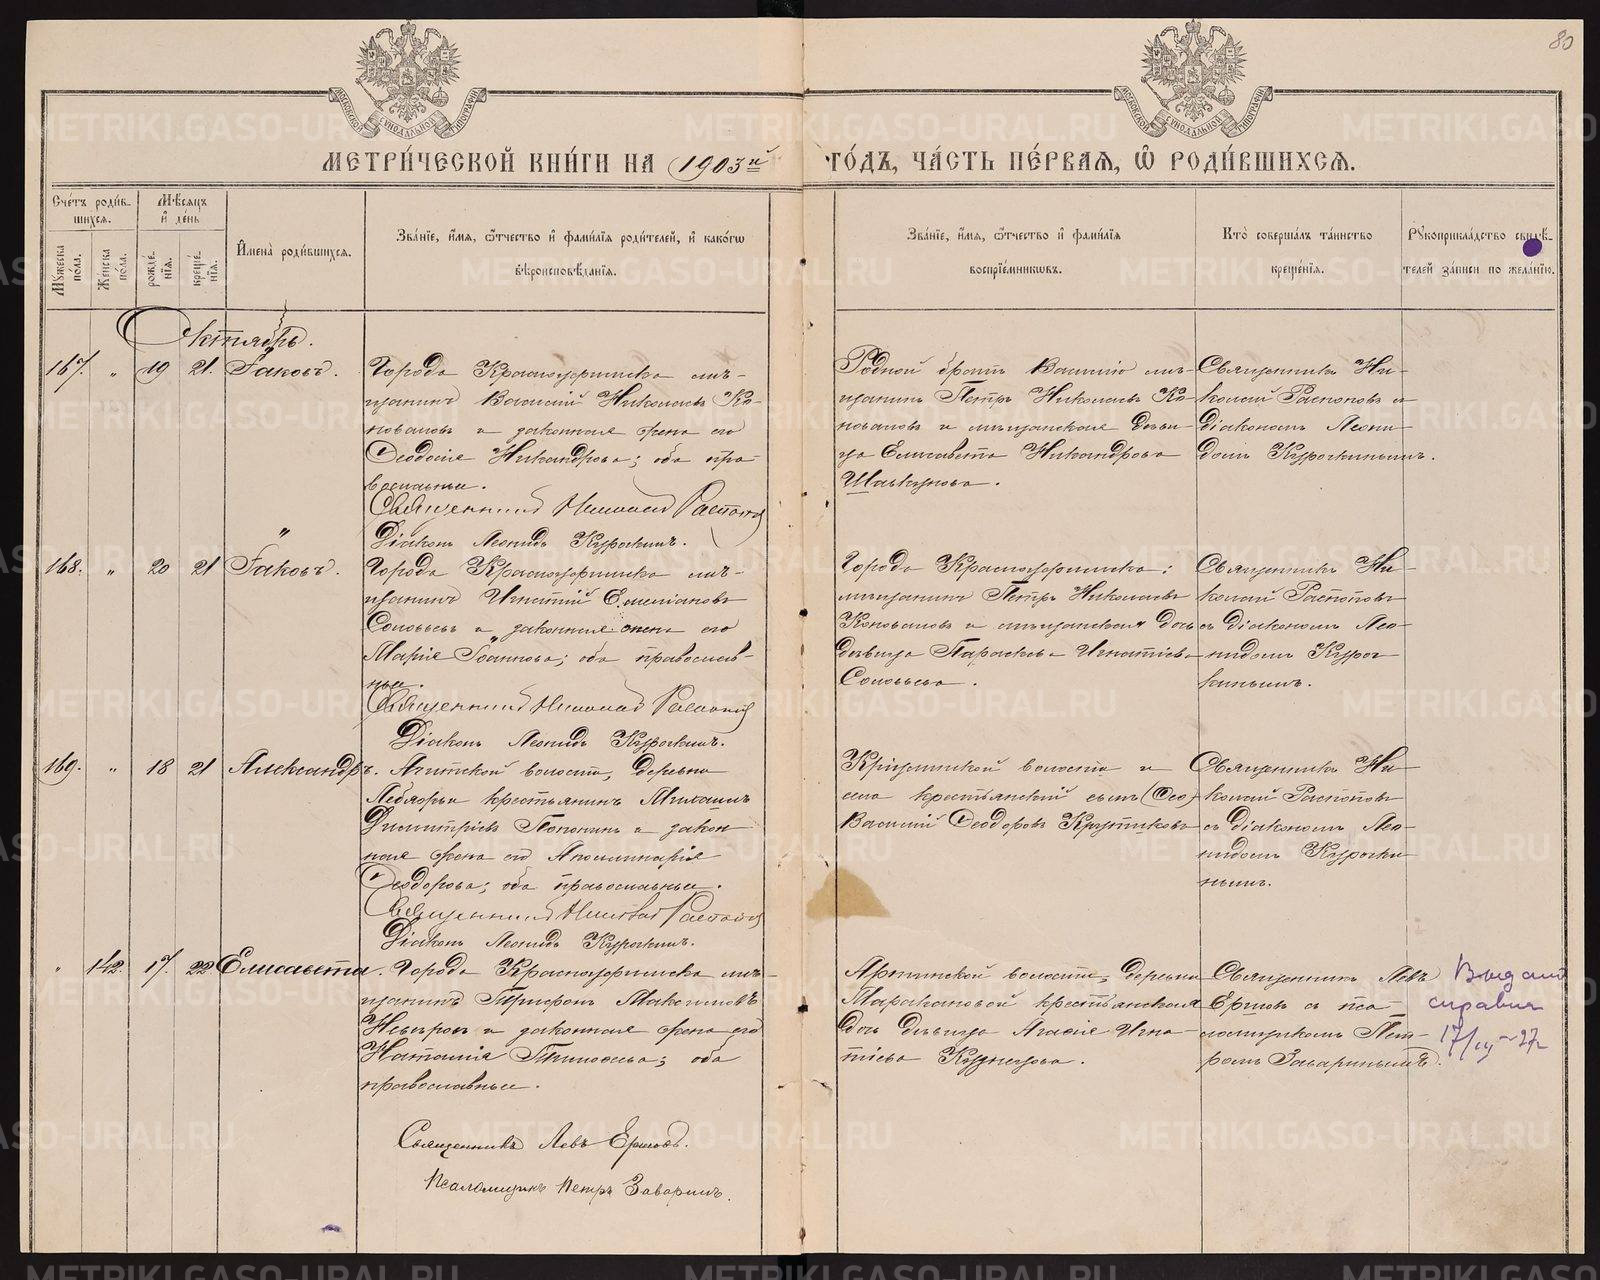 80
МОСКОВСКОЙ СѴНОДАЛЬНОЙ ТИПОГРАФІИ
МОСКОВСКОЙ СѴНОДАЛЬНОЙ ТИПОГРАФІИ
МЕТРИ́ЧЕСКОЙ КНИ́ГИ НА 1903й ГО́ДЪ, ЧА́СТЬ ПЕ́РВАЯ, Ѡ РОДИ́ВШИХСЯ.
Сче́тъ роди́в-
шихся.
Мѣ́сяцъ
и де́нь
Мꙋжеска по́ла.
Же́нска по́ла.
рожде́нїя.
креще́нїя.
Имена̀ роди́вшихся.
Зва́нїе, и́мя, ѻ́тчество и фами́лїя роди́телей, и како́гѡ
вѣроисповѣ́данїя.
Зва́нїе, и́мя, ѻ́тчество и фами́лїя
воспрїе́мникѡвъ.
Кто̀ соверша́лъ та́инство
креще́нїя.
Рꙋкоприкла́дство свидѣ́-
телей за́писи по жела́нїю.
Октябрь.
167. " 19 21. Іаковъ.
Города Красноуфимска мѣ-
щанинъ Василій Николаевъ Ко-
новаловъ и законная жена его
Ѳеодосія Никандрова; оба пра-
вославные.
Священникъ Николай Распоповъ
Діаконъ Леонидъ Курочкинъ.
Родной братъ Василію мѣ-
щанинъ Петръ Николаевъ Ко-
новаловъ и мѣщанская дѣви-
ца Елисавета Никандрова
Шавкунова.
Священникъ Ни-
колай Распоповъ и
діакономъ Леони-
домъ Курочкинымъ.
168. " 20 21 Іаковъ.
Города Красноуфимска мѣ-
щанинъ Игнатій Емельяновъ
Соловьевъ и законная жена его
Марія Іоаннова; оба православ-
ные.
Священникъ Николай Распоповъ
Діаконъ Леонидъ Курочкинъ.
Города Красноуфимска:
мѣщанинъ Петръ Николаевъ
Коноваловъ и мѣщанская дочь
дѣвица Параскева Игнатіева
Соловьева.
Священникъ Ни-
колай Распоповъ
съ діакономъ Лео-
нидомъ Куроч-
кинымъ.
169. " 18 21 Александръ.
Ачитской волости, деревни
крестьянинъ Михаилъ
Димитріевъ Попонинъ и закон-
ная жена его Аполлинарія
Ѳеодорова; оба православные.
Священникъ Николай Распоповъ
Діаконъ Леонидъ Курочкинъ.
волости и
села крестьянскій сынъ
Василій Ѳеодоровъ Крутиковъ
Священникъ Ни-
колай Распоповъ
съ діакономъ Лео-
нидомъ Курочки-
нымъ.
" 142. 17. 22 Елисавета.
Города Красноуфимска мѣ-
щанинъ Трифонъ Максимовъ
и законная жена его
Наталія Тимоѳеева; оба
православные.
Священникъ Левъ Ершовъ.
Псаломщикъ Петръ Заваринъ.
Артинской волости, деревни
крестьянская
дочь дѣвица Агаѳія Игна-
тіева Кузнецова.
Священникъ Левъ
Ершовъ съ пса-
ломщикомъ Пет-
ромъ Заваринымъ.
Выдана
справка
METRIKI.GASO-URAL.RU